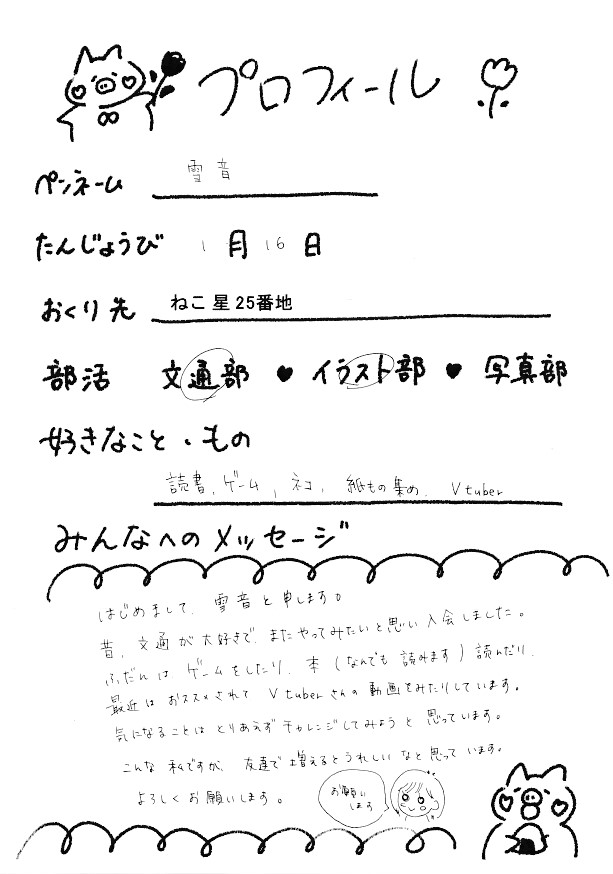 プロフィール
ペンネーム 雪音
たんじょうび 1月16日
おくり先 ねこ星25番地
部活 文通部 ♥ イラスト部 ♥ 写真部
好きなこと・もの
読書, ゲーム, ネコ, 紙もの集め, Vtuber
みんなへのメッセージ
はじめまして、雪音と申します。
昔、文通が大好きで、またやってみたいと思い入会しました。
ふだんは、ゲームをしたり、本(なんでも読みます)読んだり、
最近はおススメされてVtuberさんの動画をみたりしています。
気になることはとりあえずチャレンジしてみようと思っています。
こんな私ですが、友達で増えるとうれしいなと思っています。
よろしくお願いします。
お願い
します